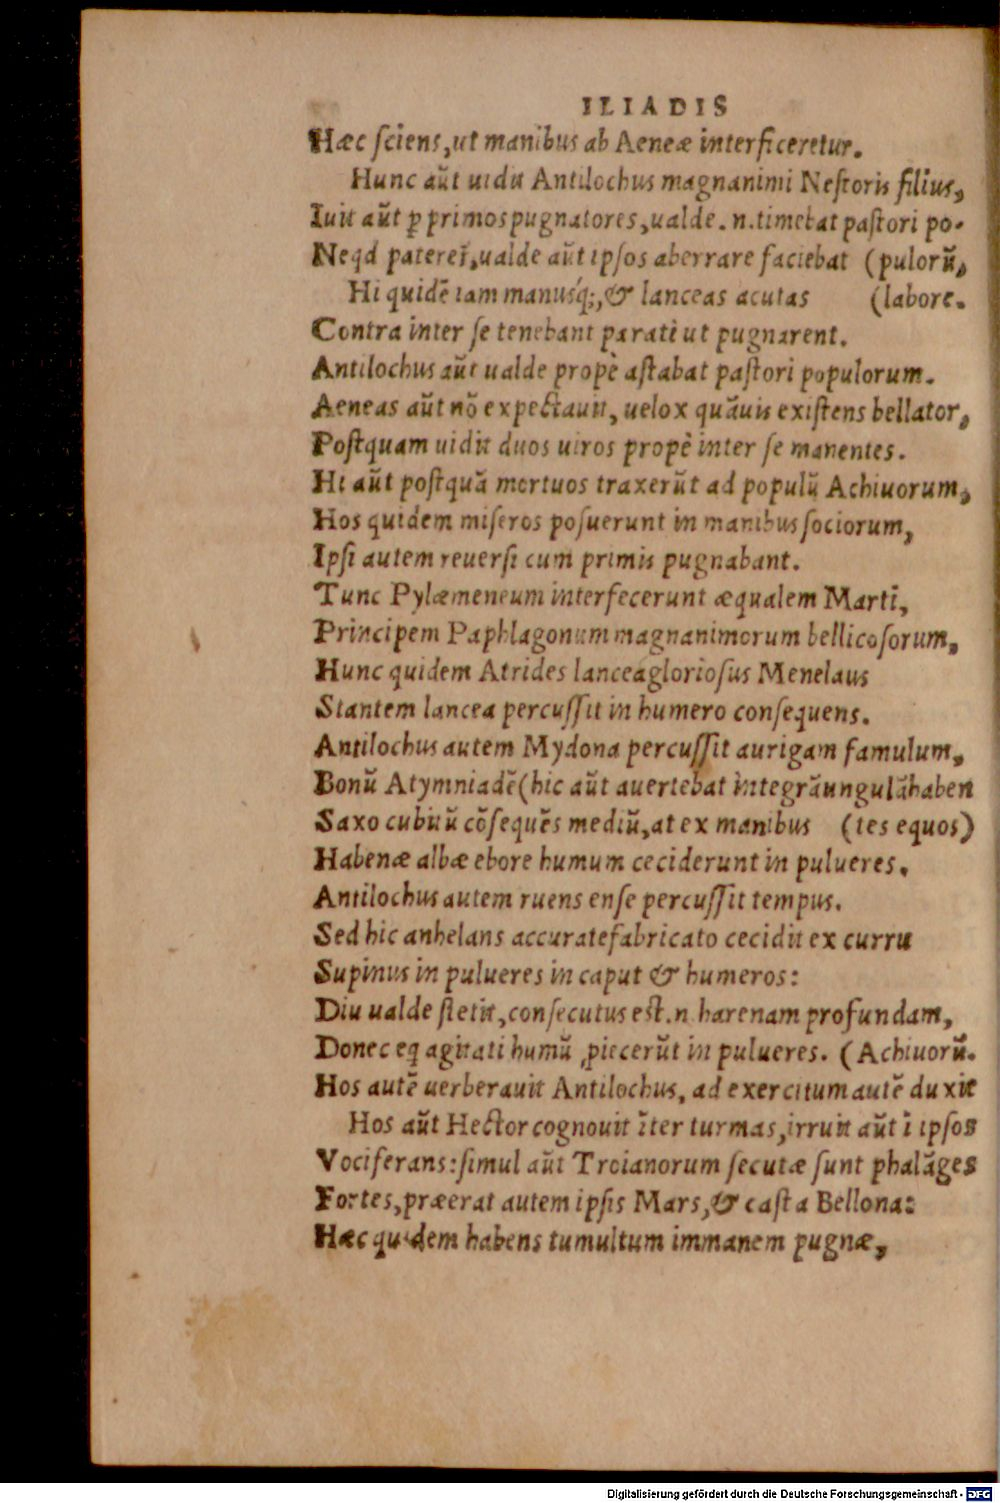 ILIADIS
Hæc ſciens, ut manibus ab Aeneæ interficeretur.
Hunc aũt uidit Antilochus magnanimi Neſtoris filius,
Iuit aũt ꝑ primos pugnatores, ualde .n. timebat paſtori po-
Neqd pateret̃, ualde aũt ipſos aberrare faciebat (pulorũ,
Hi quidẽ iam manuſq́;, & lanceas acutas (labore.
Contra inter ſe tenebant parati ut pugnarent.
Antilochus aũt ualde propè aſtabat paſtori populorum.
Aeneas aũt nõ expectauit, uelox quãuis exiſtens bellator,
Poſtquam uidit duos uiros propè inter ſe manentes.
Hi aũt poſtquã mortuos traxerũt ad populũ Achiuorum,
Hos quidem miſeros poſuerunt in manibus ſociorum,
Ipſi autem reuerſi cum primis pugnabant.
Tunc Pylæmeneum interfecerunt æqualem Marti,
Principem Paphlagonum magnanimorum bellicoſorum,
Hunc quidem Atrides lancea glorioſus Menelaus
Stantem lancea percuſſit in humero conſequens.
Antilochus autem Mydona percuſſit aurigam famulum,
Bonũ Atymniadẽ (hic aũt auertebat integrã ungulã haben
Saxo cubitũ cõſequẽs mediũ, at ex manibus (tes equos)
Habenæ albæ ebore humum ceciderunt in pulueres.
Antilochus autem ruens enſe percuſſit tempus.
Sed hic anhelans accurate fabricato cecidit ex curru
Supinus in pulueres in caput & humeros:
Diu ualde ſtetit, conſecutus eſt .n harenam profundam,
Donec eq agitati humũ ,piecerũt in pulueres. (Achiuorũ.
Hos autẽ uerberauit Antilochus, ad exercitum autẽ duxit
Hos aũt Hector cognouit ĩter turmas, irruit aũt ĩ ipſos
Vociferans: ſimul aũt Troianorum ſecutæ ſunt phalãges
Fortes, præerat autem ipſis Mars, & caſta Bellona:
Hæc quidem habens tumultum immanem pugnæ,
Digitalisierung gefördert durch die Deutsche Forschungsgemeinschaft - DFG